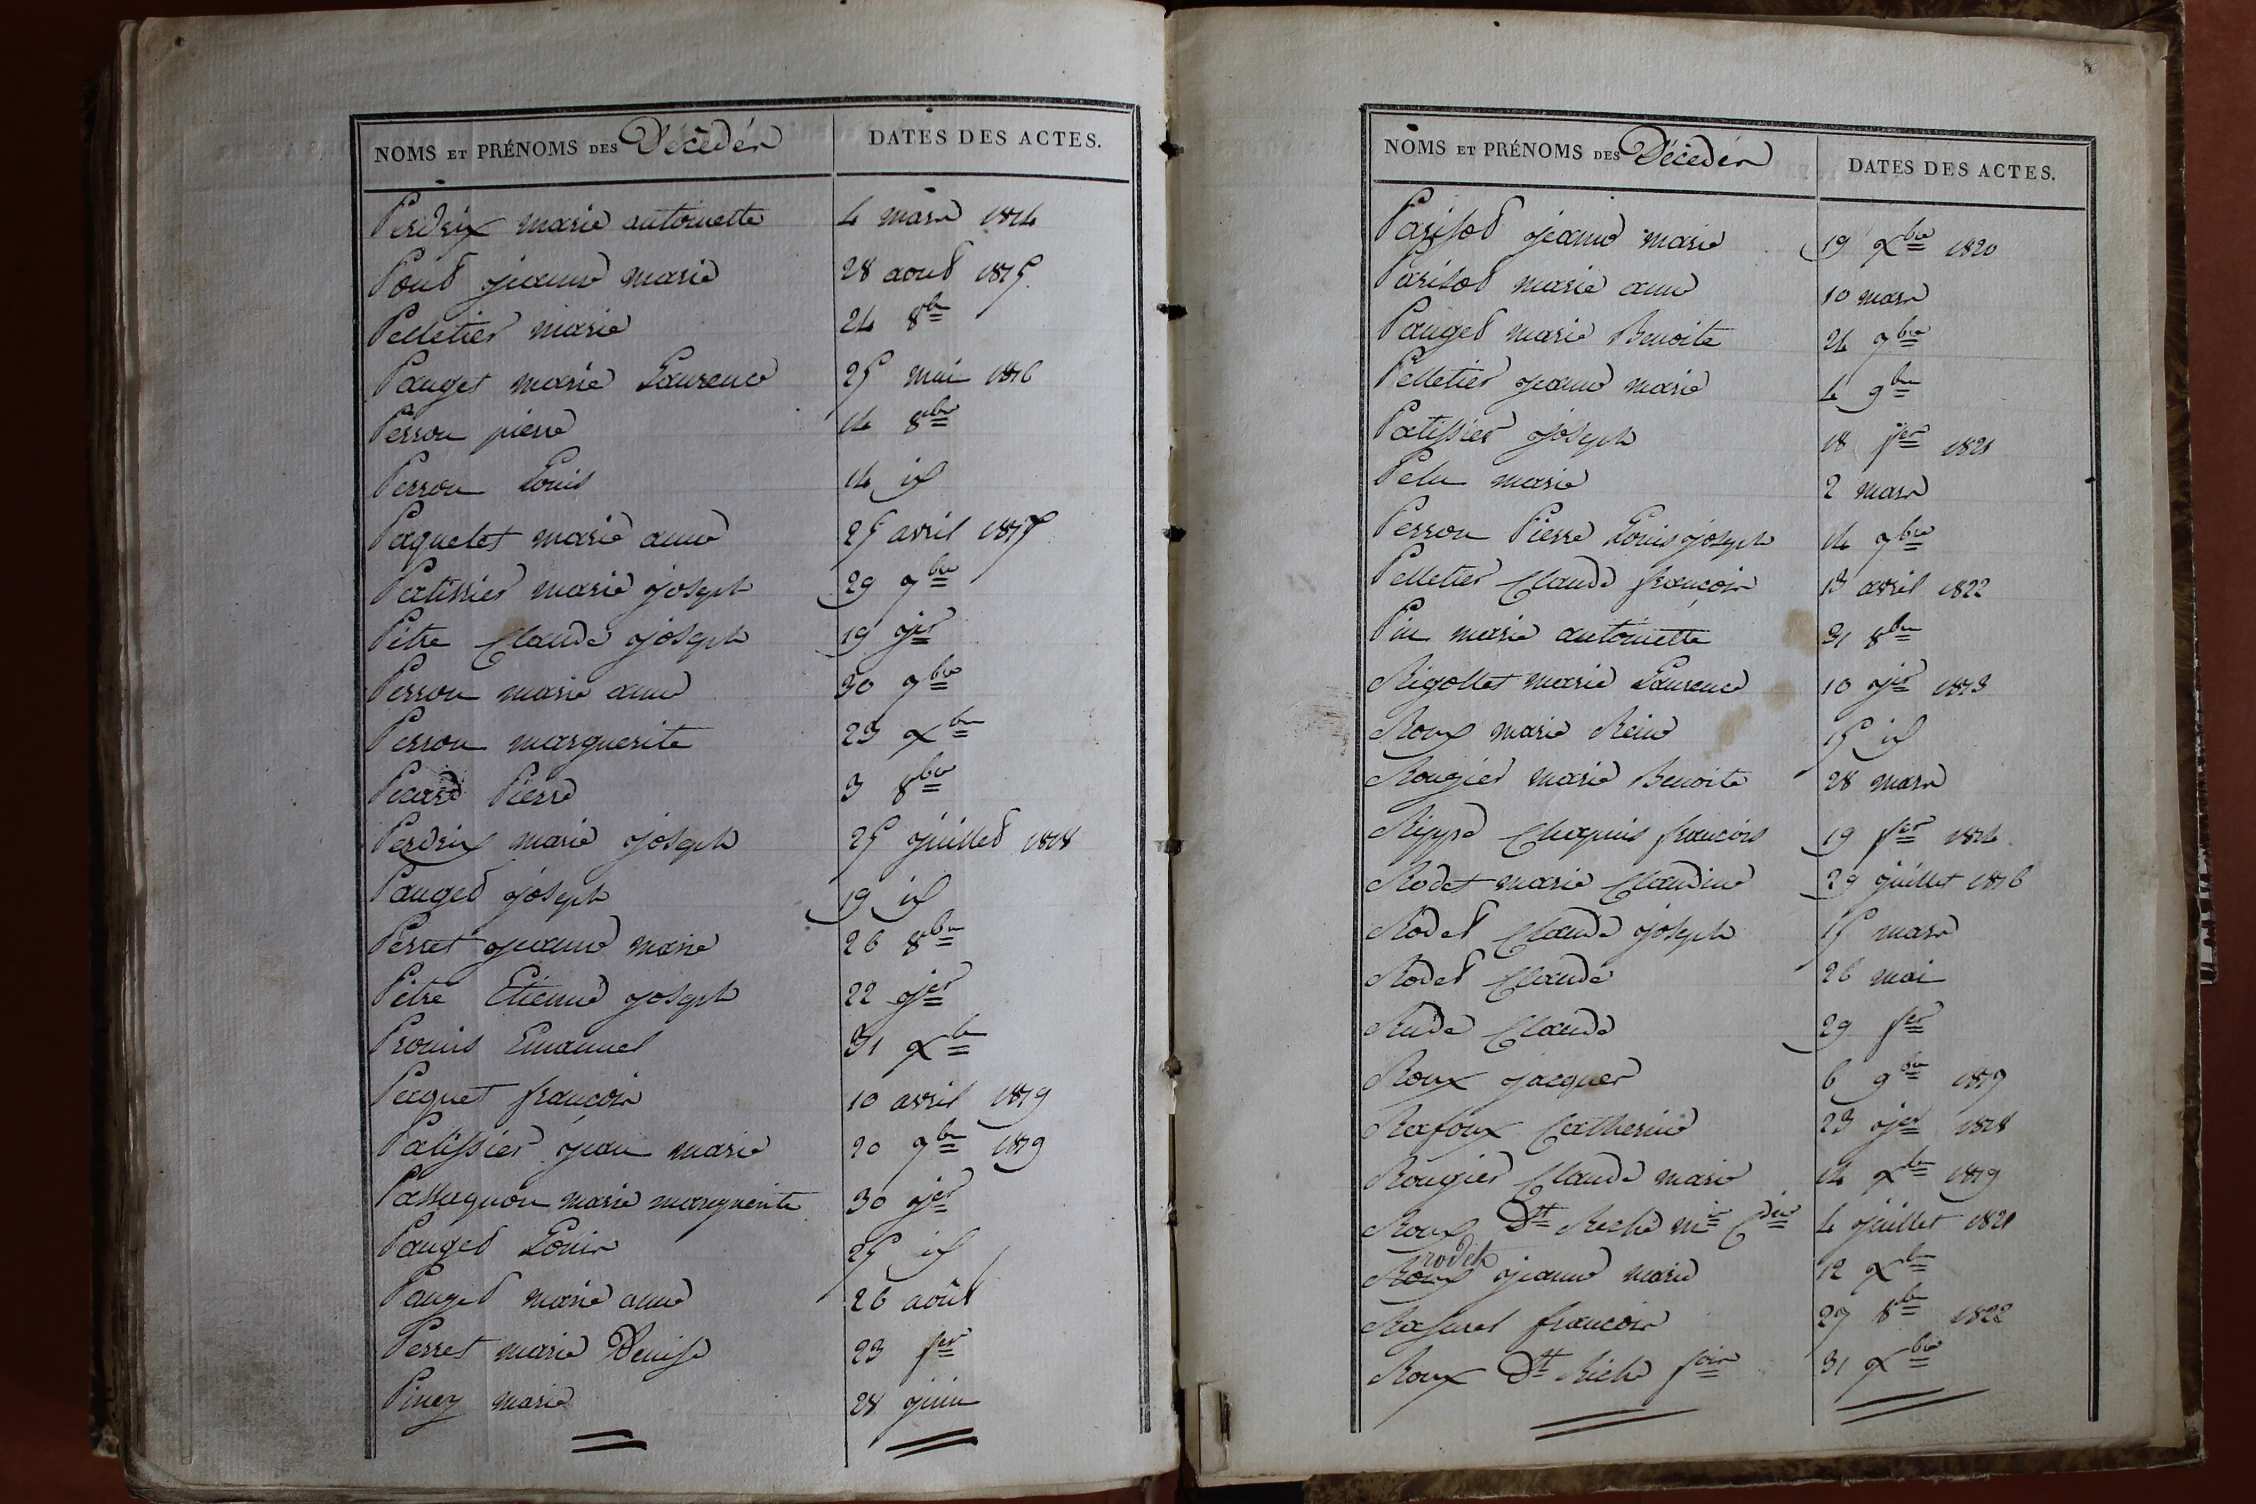 NOMS ET PRÉNOMS DES Décédés DATES DES ACTES.
Perdrix marie antoinette 4 mars 1814
Pont jeanne marie 28 aout 1815
Pelletier marie 24 8bre
Pauget marie Laurence 25 mai 1816
Perron pierre 14 8bre
Perron Louis 14 id
Paquelet marie anne 25 avril 1817
Patissier marie joseph 29 7bre
Pitre Claude joseph 19 jer
Perron marie anne 30 7bre
Perron marguerite 23 xbre
Picard Pierre 3 8bre
Perdrix marie joseph 25 juillet 1818
Pauget joseph 19 id
Perret jeanne marie 26 8bre
Pitre Etienne joseph 22 jer
Emanuel 31 xbre
Paquet francois 10 avril 1819
Patissier jean marie 20 7bre 1819
Passaquon marie marguerite 30 jer
Pauget Louis 25 id
Pauget marie anne 26 août
Perret marie Denise 23 fer
Piney marie 28 juin
NOMS ET PRÉNOMS DES Décédés DATES DES ACTES.
Parisot jeanne marie 19 xbre 1820
Parisot marie anne 10 mars
Pauget marie Benoite 24 7bre
Pelletier jeanne marie 4 9bre
Patissier joseph 18 fer 1821
Pelu marie 2 mars
Perron Pierre Louis joseph 14 7bre
Pelletier Claude francois 13 avril 1822
Pin marie antoinette 31 8bre
Rigollet marie Laurence 10 jer 1813
Roux marie Reine 15 id
Rougier marie Benoite 28 mars
Rippe francois 19 fer 1814
Rodet marie Claudine 29 juillet 1816
Rodet Claude joseph 15 mars
Rodet Claude 26 mai
Rude Claude 29 fer
Roux jacques 6 9bre 1819
Rafoux Catherine 23 jer 1818
Rougier Claude marie 14 xbre 1819
Roux Dt Riche mie Cdine 4 juillet 1821
rodet
Roux jeanne marie 12 xbre
Rasurel francois 27 8bre 1822
Roux Dt Riche fois 31 xbre